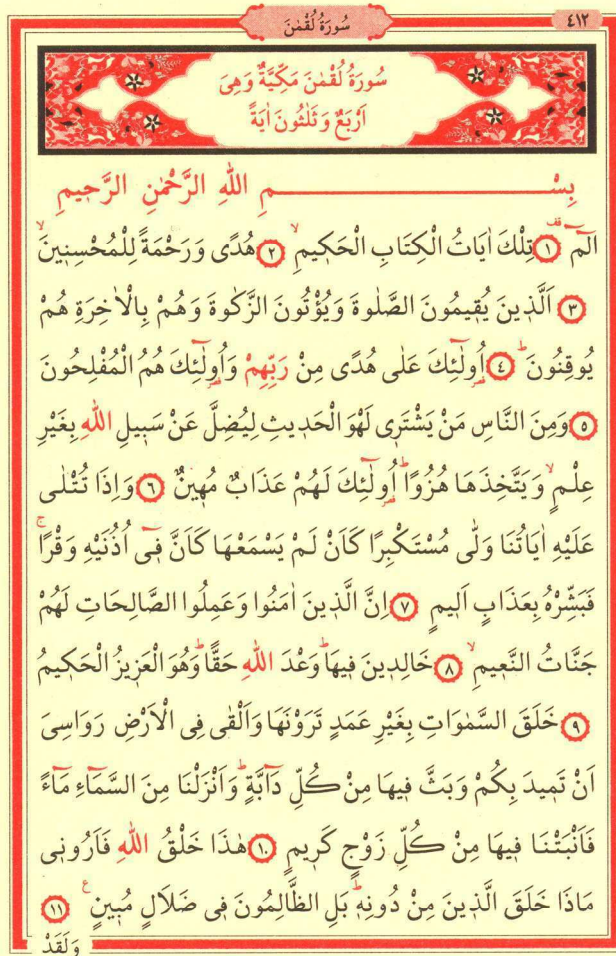 سُورَةُ لُقْمٰنَ
٤١٢
سُورَةُ لُقْمٰنَ مَكِّيَّةٌ وَهِىَ
اَرْبَعٌ وَثَلٰثُونَ اٰيَةً
بِسْمِ اللهِ الرَّحْمٰنِ الرَّحٖيمِ
الٓمٓ ۗ ١ تِلْكَ اٰيَاتُ الْكِتَابِ الْحَكٖيمِ ۙ ٢ هُدًى وَرَحْمَةً لِلْمُحْسِنٖينَ ۙ
٣ اَلَّذٖينَ يُقٖيمُونَ الصَّلٰوةَ وَيُؤْتُونَ الزَّكٰوةَ وَهُمْ بِالْاٰخِرَةِ هُمْ
يُوقِنُونَ ۜ ٤ اُولٰٓئِكَ عَلٰى هُدًى مِنْ رَبِّهِمْ وَاُولٰٓئِكَ هُمُ الْمُفْلِحُونَ
٥ وَمِنَ النَّاسِ مَنْ يَشْتَرٖى لَهْوَ الْحَدٖيثِ لِيُضِلَّ عَنْ سَبٖيلِ اللهِ بِغَيْرِ
عِلْمٍ ۙ وَيَتَّخِذَهَا هُزُوًا ۜ اُولٰٓئِكَ لَهُمْ عَذَابٌ مُهٖينٌ ٦ وَاِذَا تُتْلٰى
عَلَيْهِ اٰيَاتُنَا وَلّٰى مُسْتَكْبِرًا كَاَنْ لَمْ يَسْمَعْهَا كَاَنَّ فٖٓى اُذُنَيْهِ وَقْرًا ۚ
فَبَشِّرْهُ بِعَذَابٍ اَلٖيمٍ ٧ اِنَّ الَّذٖينَ اٰمَنُوا وَعَمِلُوا الصَّالِحَاتِ لَهُمْ
جَنَّاتُ النَّعٖيمِ ۙ ٨ خَالِدٖينَ فٖيهَا ۜ وَعْدَ اللهِ حَقًّا ۜ وَهُوَ الْعَزٖيزُ الْحَكٖيمُ
٩ خَلَقَ السَّمٰوَاتِ بِغَيْرِ عَمَدٍ تَرَوْنَهَا وَاَلْقٰى فِى الْاَرْضِ رَوَاسِىَ
اَنْ تَمٖيدَ بِكُمْ وَبَثَّ فٖيهَا مِنْ كُلِّ دَٓابَّةٍ ۜ وَاَنْزَلْنَا مِنَ السَّمَٓاءِ مَٓاءً
فَاَنْبَتْنَا فٖيهَا مِنْ كُلِّ زَوْجٍ كَرٖيمٍ ١٠ هٰذَا خَلْقُ اللهِ فَاَرُونٖى
مَاذَا خَلَقَ الَّذٖينَ مِنْ دُونِهٖ ۜ بَلِ الظَّالِمُونَ فٖى ضَلَالٍ مُبٖينٍ ع ١١
وَلَقَدْ